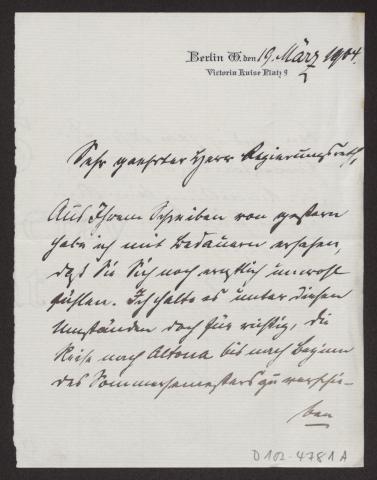 Berlin W. den 19. März 1904.
Victoria Luise Platz 9
Sehr geehrter Herr Regierungsrath,
Aus Ihrem Schreiben von gestern
habe ich mit Bedauern ersehen,
daß Sie Sich noch unwohl
fühlen. Ich halte es unter diesen
Umständen doch für richtig, die
Reise nach Altona bis nach Beginn
des Sommersemesters zu verschie-
ben
D 102-4781A